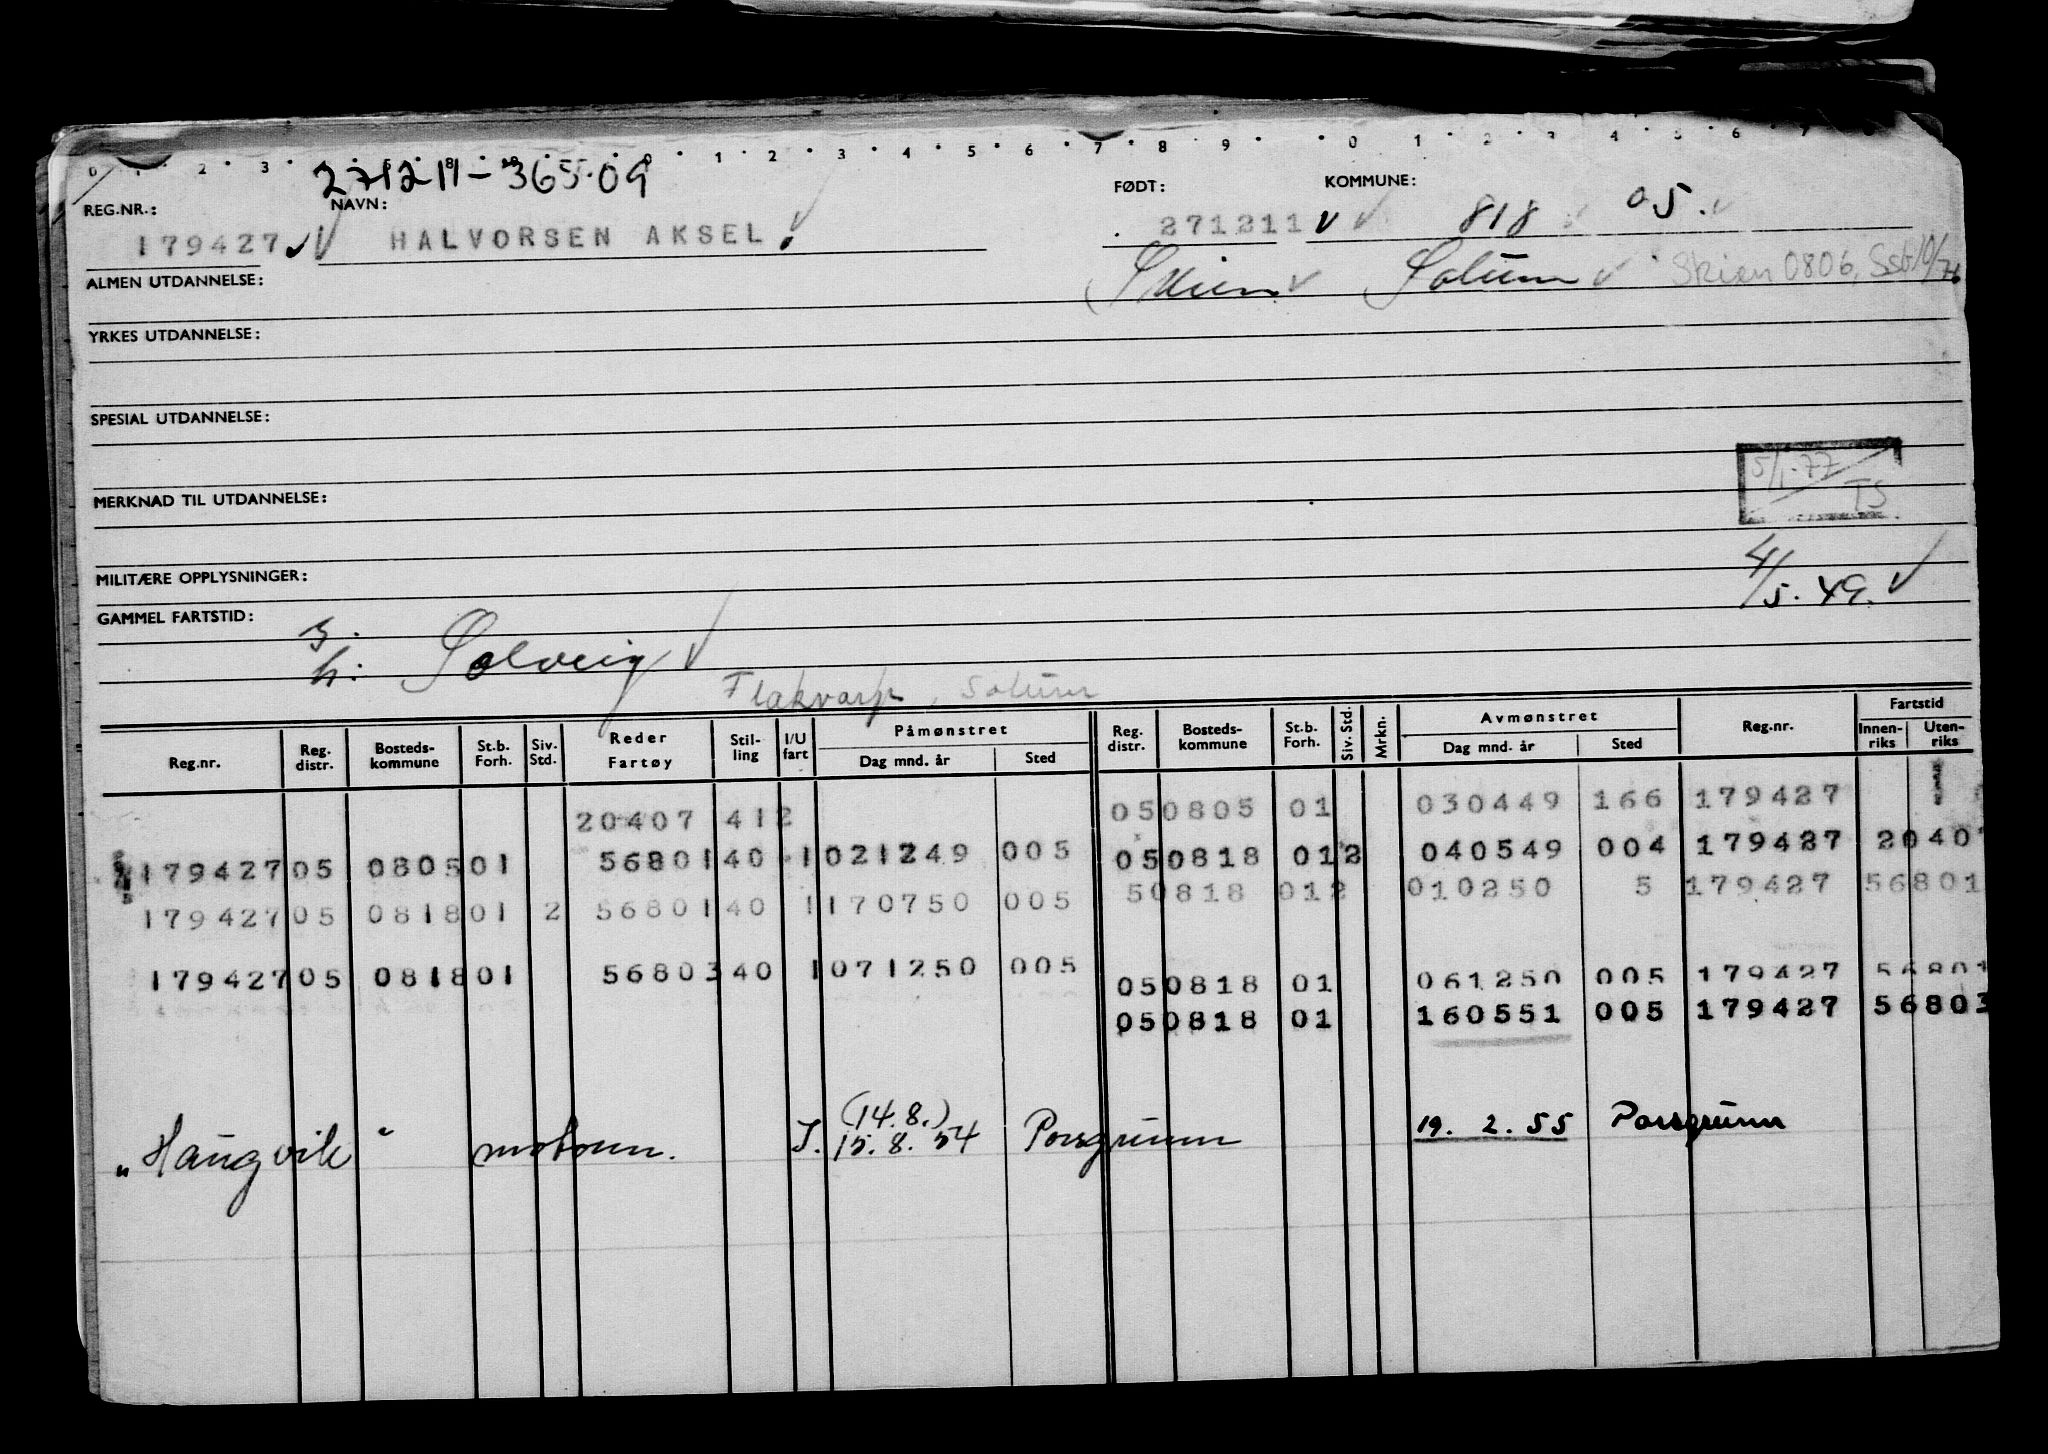 0 1 2 3 0 1 2 3 4 5 6 7 8 9 0 1 2 3 4 5 6 7
271211-36509
REG.NR.: NAVN: FØDT: KOMMUNE:
179427 HALVORSEN AKSEL. 271211 818 05.
ALMEN UTDANNELSE: (Skien Solum Skien 0806, Ssb 10/76
YRKES UTDANNELSE:
SPESIAL UTDANNELSE:
5/1-77
MERKNAD TIL UTDANNELSE: TS
MILITÆRE OPPLYSNINGER: 4/5.49.
GAMMEL FARTSTID:
h: Solveig
Flakvarp, Solum
Reg.nr. Reg. distr. Bosteds-kommune St.b. Forh. Siv. Std. Reder Fartøy Stil-ling I/U fart Påmønstret Dag mnd. år Sted Reg. distr. Bosteds-kommune St.b. Forh. Siv. Std. Mrkn. Avmønstret Dag mnd. år Sted Reg.nr. Fartstid Innen-riks Uten-riks
20407 412 050805 01 030449 166 179427
179427 05 0805 01 56801 40 1 021249 005 050818 01 2 040549 004 179427 2040
179427 05 0818 01 2 56801 40 1 170750 005 50818 01 2 010250 5 179427 56801
179427 05 0818 01 56803 40 1 071250 005 050818 01 061250 005 179427 56801
050818 01 160551 005 179427 56803
(14.8.)
"Haugvik" motorm. I. 15.8.54 Porsgrunn 19. 2. 55 Porsgrunn